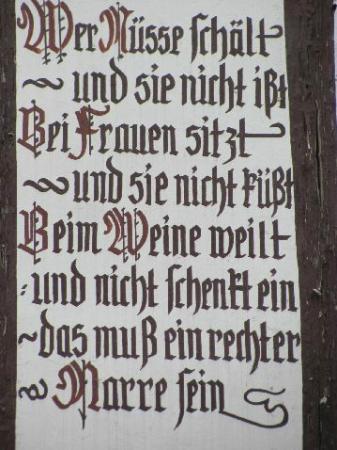 Wer Nüsse schält
~ und sie nicht ißt
Bei Frauen sitzt
~ und sie nicht küßt
Beim Weine weilt
und nicht schenkt ein
~ das muß ein rechter
~ Narre sein